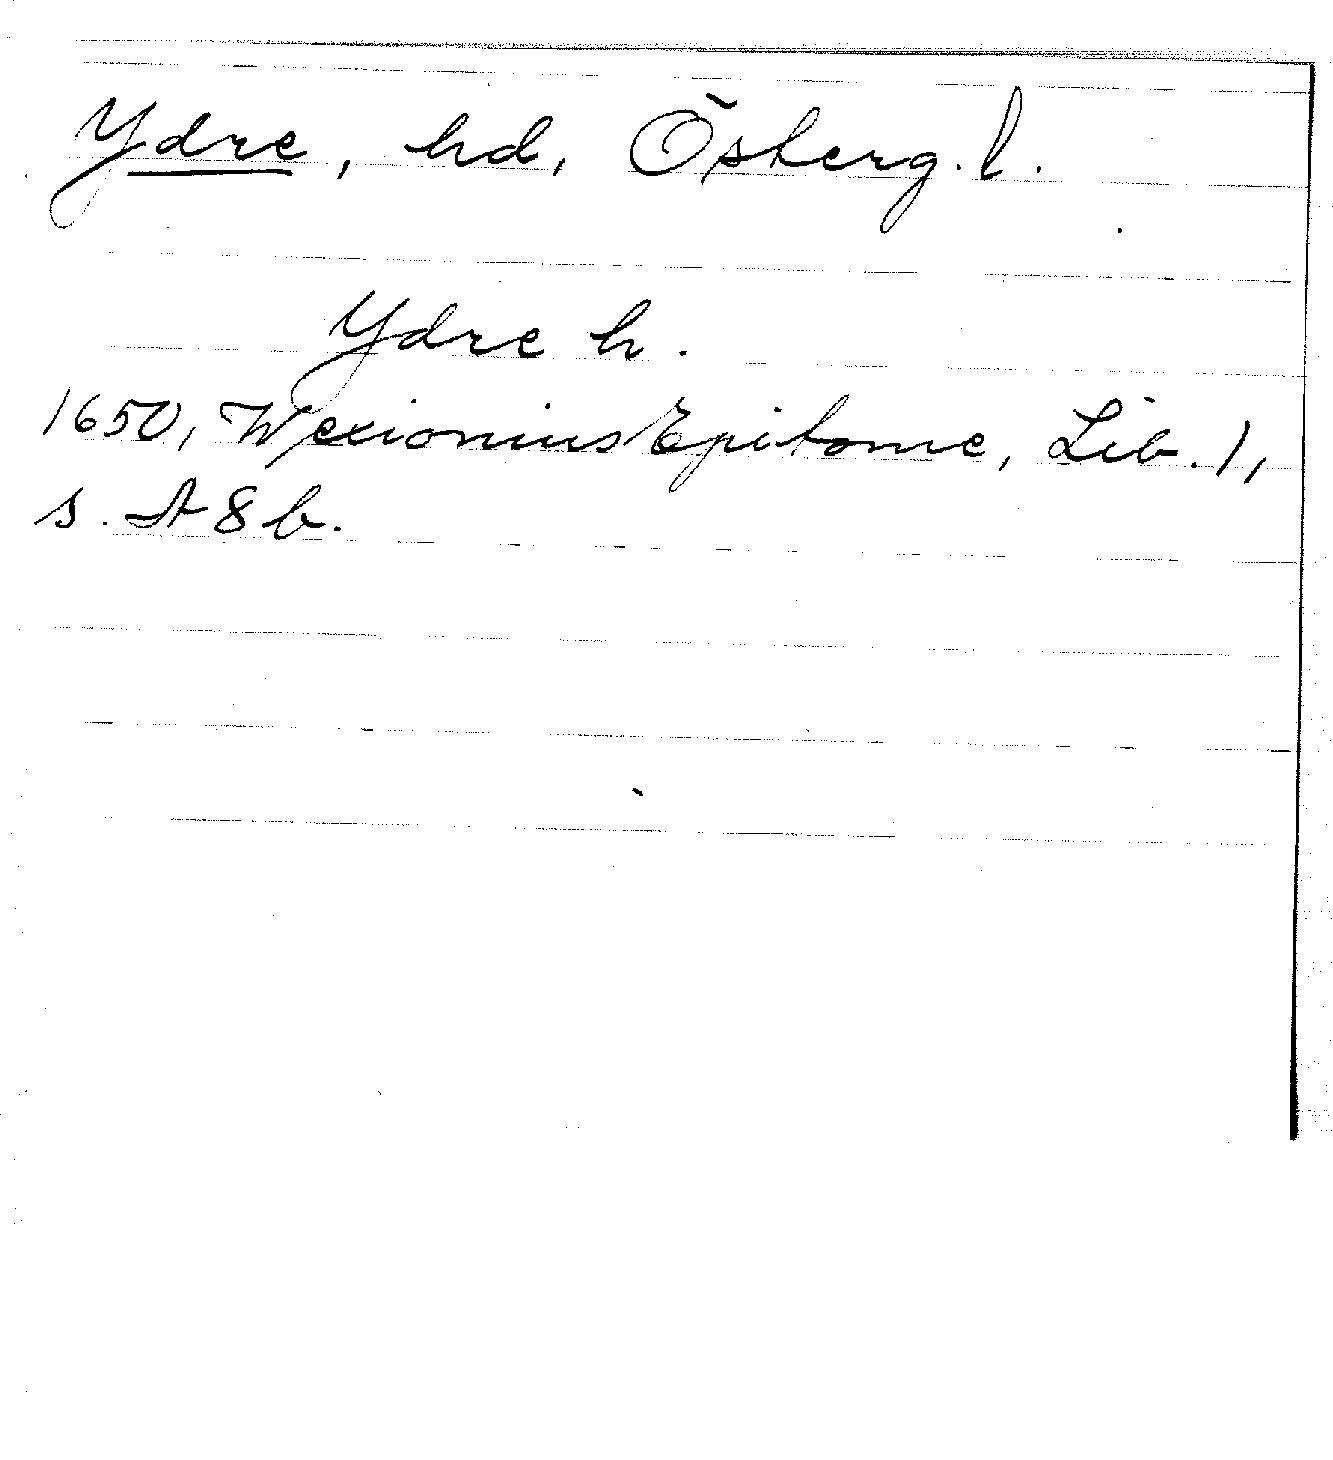 Ydre, hd, Österg. l.
Ydre h.
1650, Wexionius Epitome, Lib. 1,
s. A 8 b.